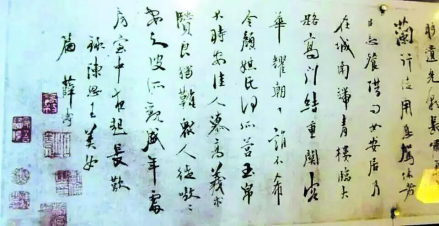 盼遺光彩長嘯
蘭行徒用息駕休者
以忘餐借問女安居乃
在城南端青樓臨大
路高门結重關容
華耀朝日誰不希
令顏媒氏何所營玉帛
不時安佳人慕高義求
賢良獨難眾人徒嗷嗷
安知彼所觀盛年處
房室中夜起長歎
陳思王美女
篇 薛